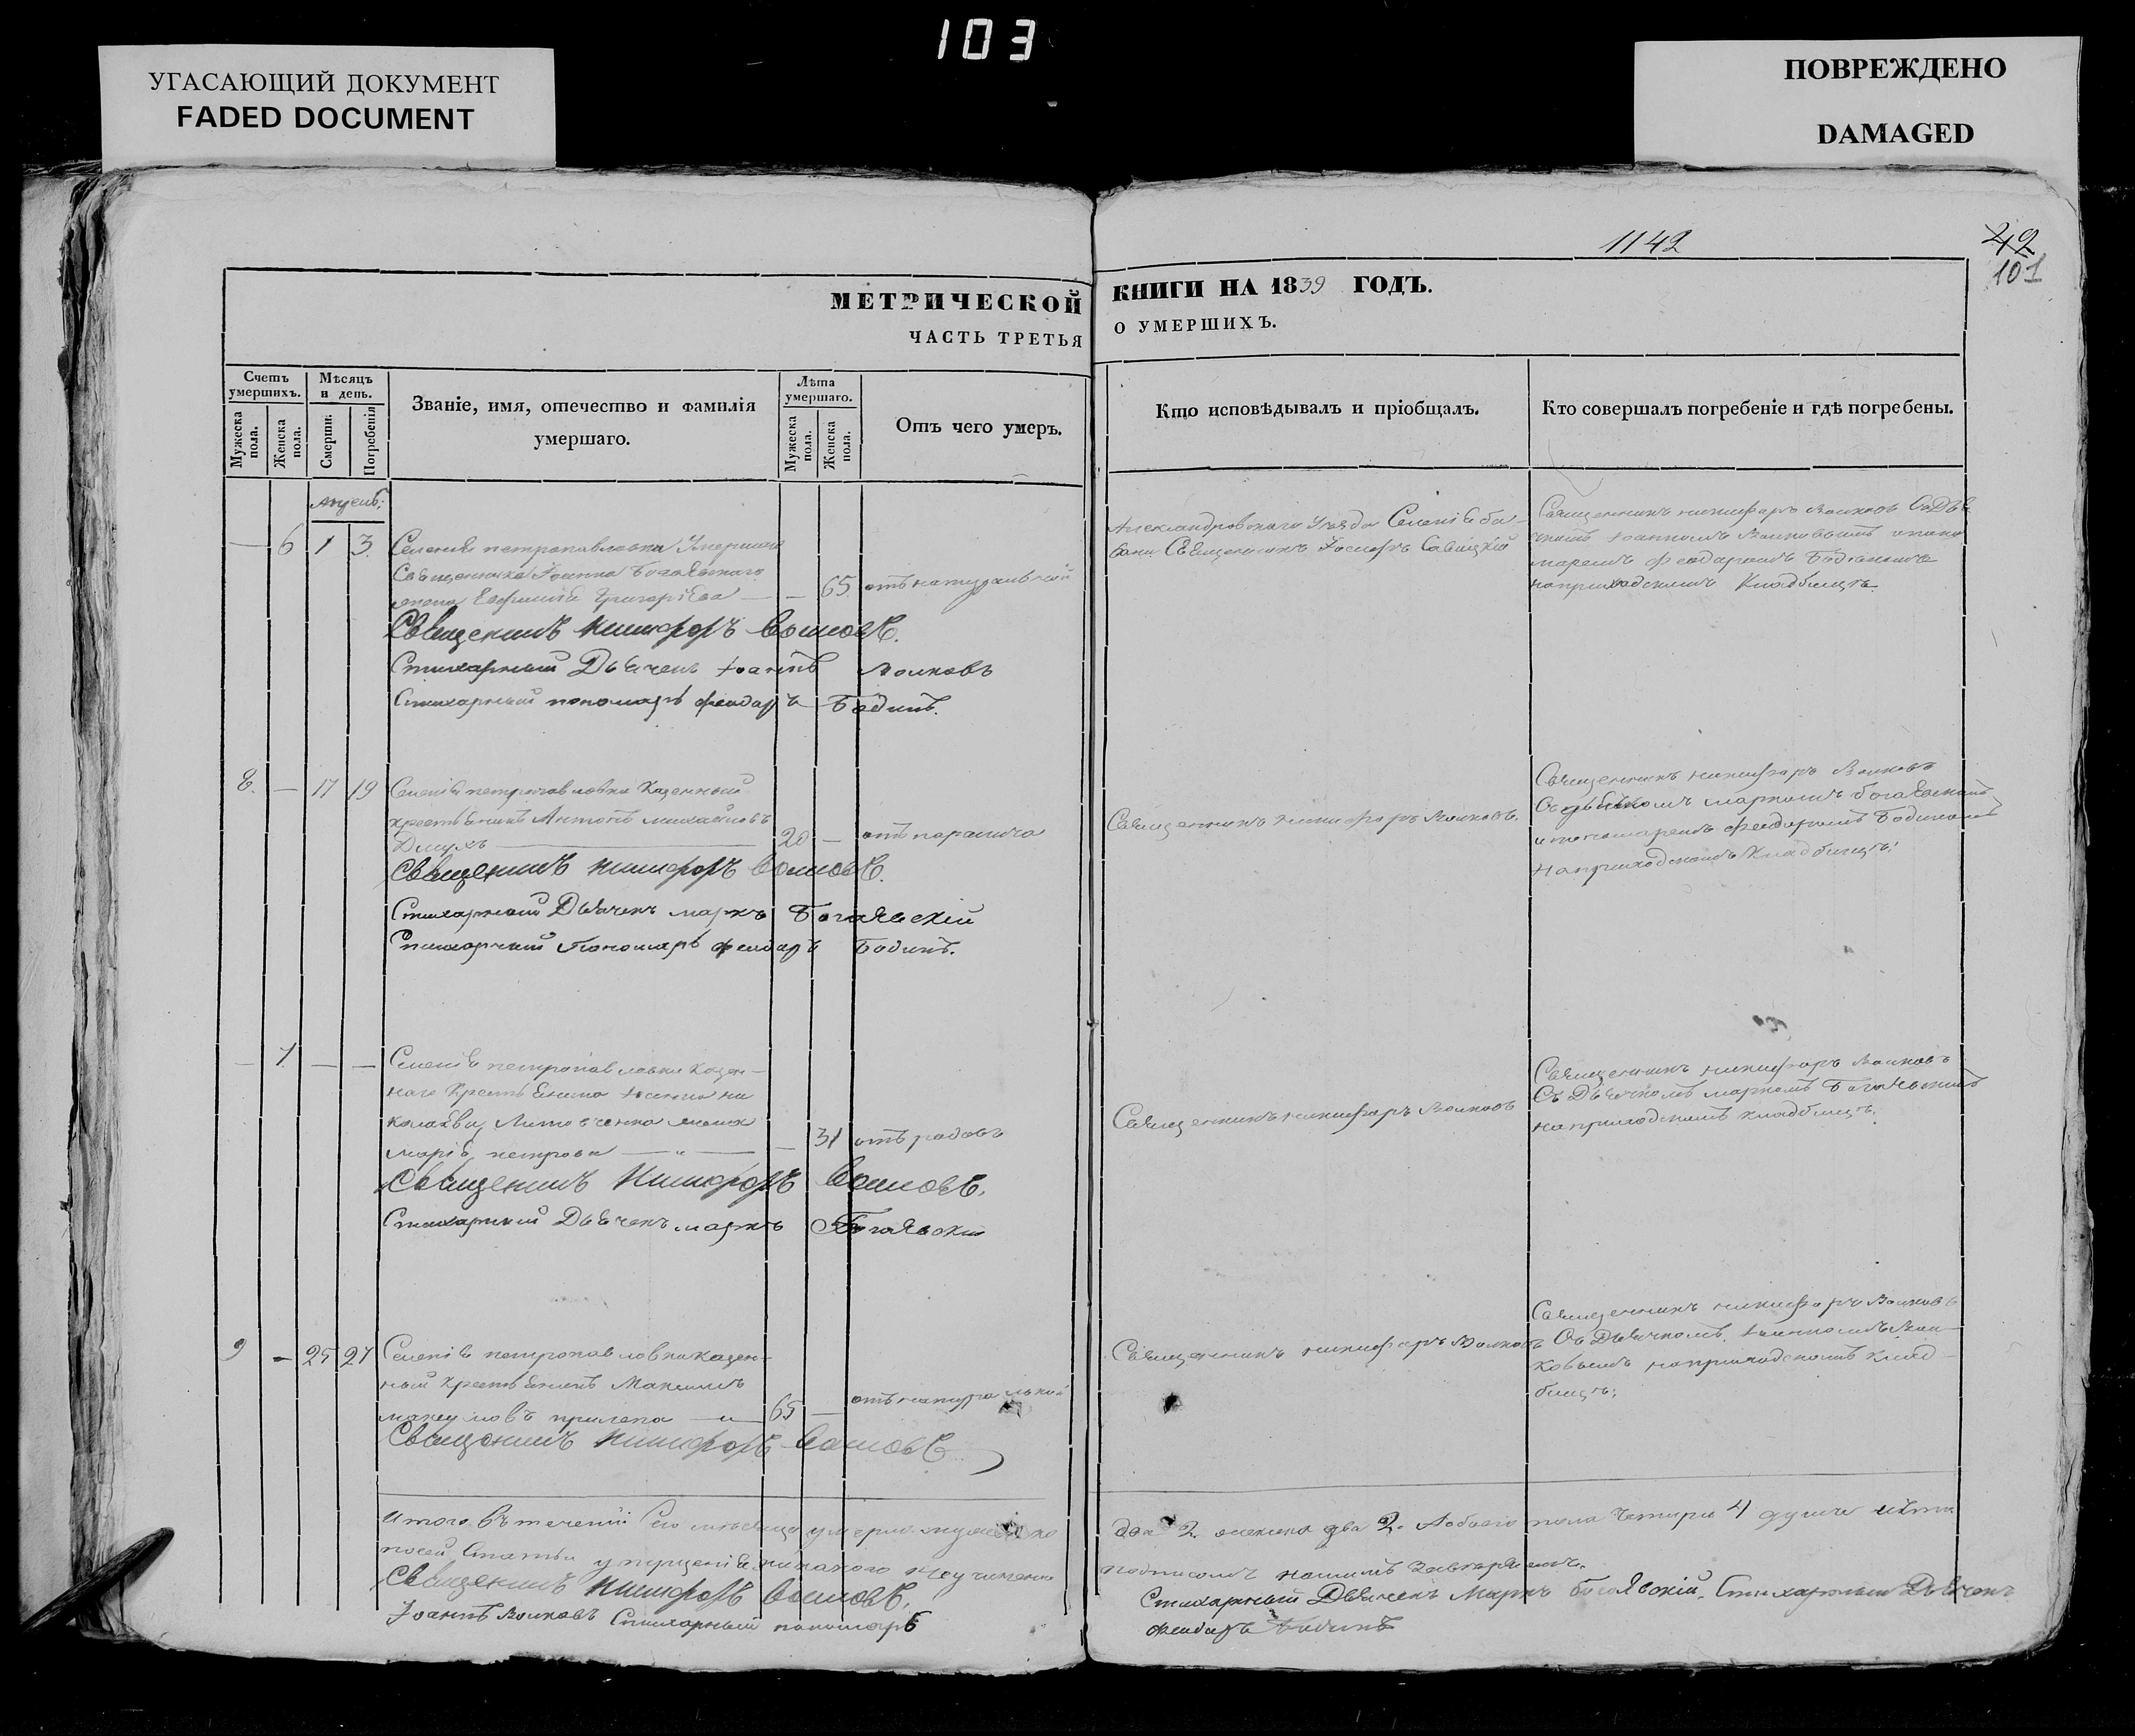 103
УГАСАЮЩИЙ ДОКУМЕНТ
FADED DOCUMENT
ПОВРЕЖДЕНО
DAMAGED
1142
42
101
МЕТРИЧЕСКОЙ
ЧАСТЬ ТРЕТЬЯ
КНИГИ НА 1839 ГОДЪ.
О УМЕРШИХЪ.
Счетъ умершихъ.
Мужеска пола.
Женска пола.
Мѣсяцъ и день.
Смерти.
Погребенія
Званіе, имя, отечество и фамилія
умершаго.
Лѣта умершаго.
Мужеска пола.
Женска пола.
Отъ чего умеръ.
Кто исповѣдывалъ и пріобщалъ.
Кто совершалъ погребеніе и гдѣ погребены.
— 6 1 3. Селенія петропавловки Умершаго
Священника Іоанна Богаявскаго
жена Евфимія Григоріева — — 65. отъ натуральной
Александровскаго Уезда Селенія ба-
бани Священникъ Іосифъ Савицкій
Священникъ никифоръ Волковъ Съ Дья
чкомъ Іоанномъ Волковымъ и поно
маремъ Феодаромъ Бодинымъ
на приходскомъ Кладбищѣ.
Священникъ Никифоръ Волковъ.
Стихарный Дьячекъ Іоаннъ Волковъ
Стихарный пономарь феодаръ Бодинъ.
8. — 17 19 Селенія петропавловки Казенный
крестьянинъ Антонъ михайловъ
20 — отъ паралича
Священникъ никифоръ Волковъ.
Священникъ никифоръ Волковъ
Съ дьячкомъ маркомъ богаявскимъ
и пономаремъ феодаромъ Бодинымъ
на приходскомъ кладбищѣ.
Священникъ Никифоръ Волковъ.
Стихарный Дьячекъ маркъ Богаявскій
Стихарный Пономарь феодаръ Бодинъ.
— 7. — — Селенія петропавловки Казен-
наго Крестьянина ни
колаева Литовченка жена
марія петрова — 31 отъ родовъ
Священникъ никифоръ Волковъ
Священникъ никифоръ Волковъ
Съ Дьячкомъ маркомъ Богаявскимъ
на приходскомъ кладбищѣ.
Священникъ Никифоръ Волковъ.
Стихарный Дьячекъ маркъ Богаявскій
9 — 25 27 Селенія петропавловки казен-
ный крестьянинъ Максимъ
65 — отъ натуральной
Священникъ никифоръ Волковъ
Священникъ никифоръ Волковъ
Съ Дьячкомъ Іоанномъ Вол-
ковымъ на приходскомъ клад-
бищѣ.
Священникъ Никифоръ Волковъ
Итого въ теченіи Сего месяца умерло мужеска
два 2. женска два 2. А обоего пола четыри 4 души
по сей Статьи упущенія никакого не учинено
подписомъ нашимъ
Священникъ Никифоръ Волковъ.
Стихарный Дьячекъ Маркъ богаявскій. Стихарный Дьячекъ
Іоаннъ Волковъ Стихарный пономарь
феодаръ Бодинъ